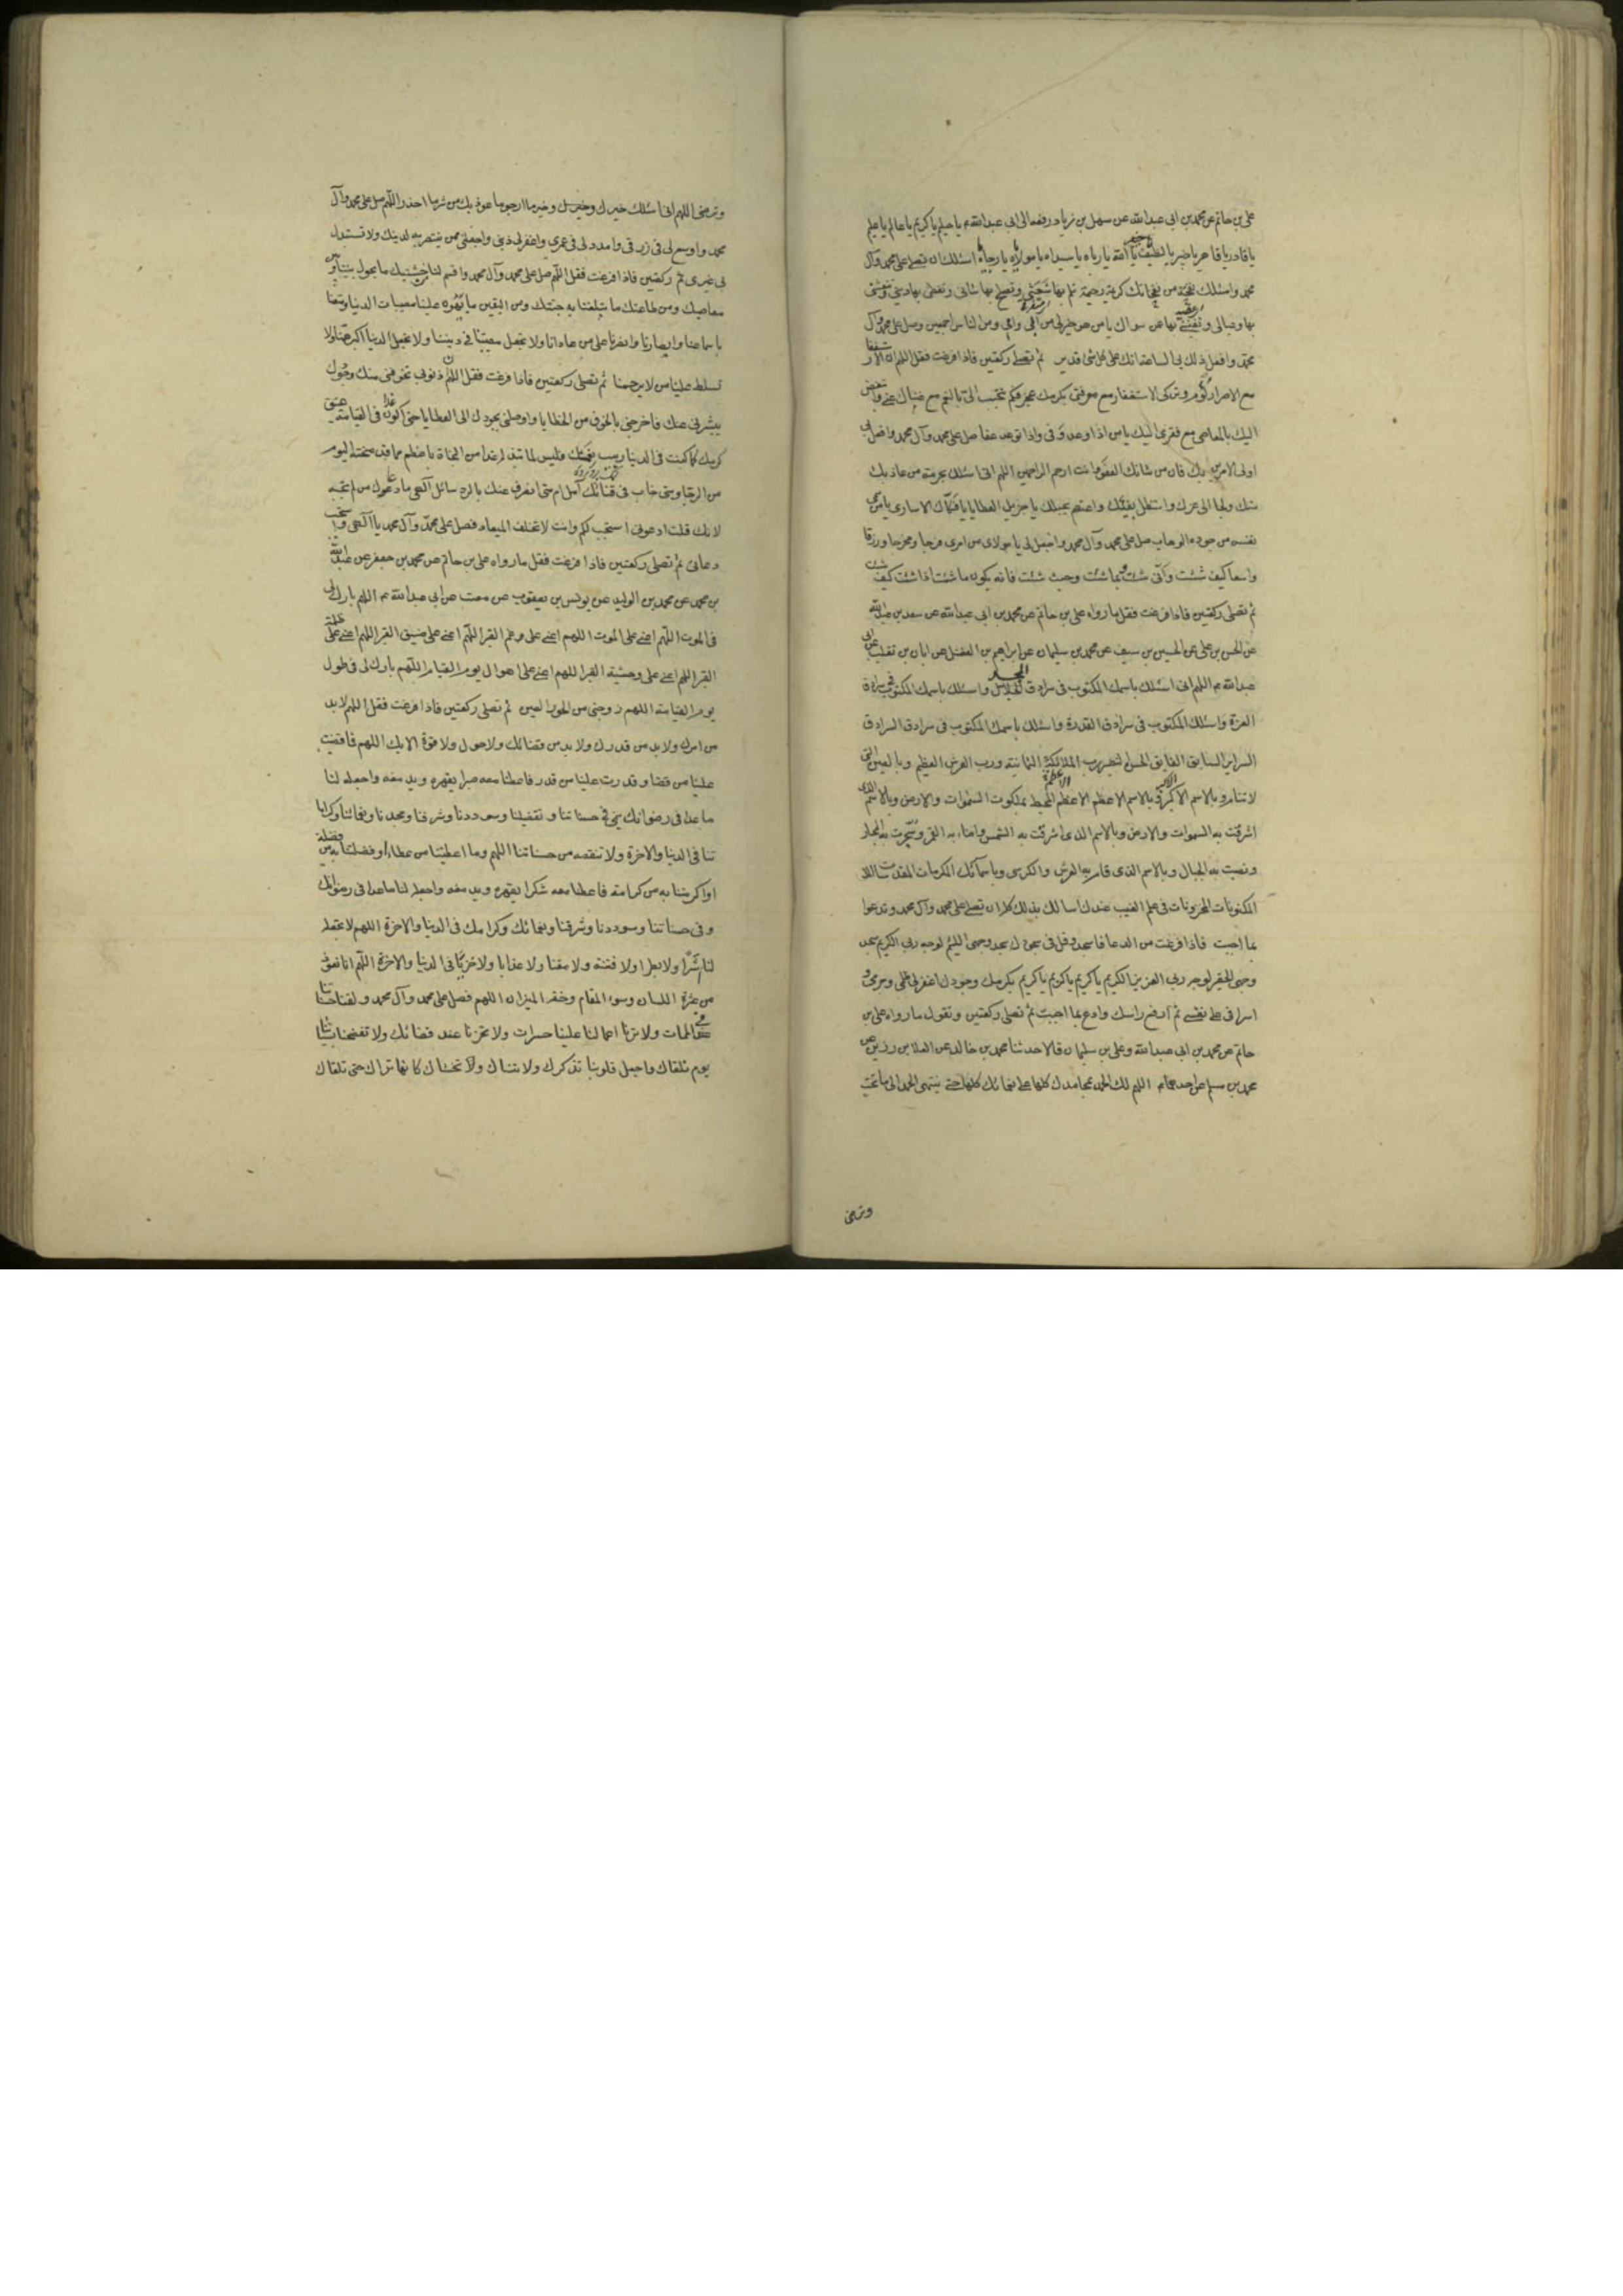 علی بن حاتم عن محمد بن ابی عبدالله عن سهل بن زیاد رفعه الی ابی عبدالله ع یا حلیم یا کریم یا عالم یا علیم
یا قادر یا قاهر یا خبیر یا لطیف یا الله یا رباه یا سیداه یا مولایاه یا رجایاه اسئلک ان تصلی علی محمد وآل
محمد واسئلک نفحة من نفحاتک کریمة رحیمة تلم بها شعثی وتصلح بها شانی وتقضی بها دینی وتنعشنی
بها وعیالی وتغنینی بها عن سواک یا من هو خیر لی من ابی وامی ومن الناس اجمعین وصل علی محمد وآل
محمد وافعل ذلک بی الساعة انک علی کل شئ قدیر ثم تصلی رکعتین فاذا فرغت فقل اللهم ان الاستغفار
مع الاصرار لوم وترکی الاستغفار مع معرفتی بکرمک عجز فکم تتحبب الی بالنعم مع غناک عنی واتبغض
الیک بالمعاصی مع فقری الیک یا من اذا وعد وفی واذا توعد عفا صل علی محمد وآل محمد وافعل بی
اولی الامرین بک فان من شانک العفو وانت ارحم الراحمین اللهم انی اسئلک بحرمة من عاذ بک
منک ولجأ الی عزک واستظل بفیئک واعتصم بحبلک یا جزیل العطایا یا فکاک الاساری یا من سمی
نفسه من جوده الوهاب صل علی محمد وآل محمد واجعل لی یا مولای من امری فرجا ومخرجا ورزقا
واسعا کیف شئت وانی شئت وبما شئت وحیث شئت فانه یکون ما شئت اذا شئت کیف شئت
ثم تصلی رکعتین فاذا فرغت فقل ما رواه علی بن حاتم عن محمد بن ابی عبدالله عن سعد بن عبدالله
عن الحسن بن علی عن الحسین بن سیف عن محمد بن سلیمان عن ابراهیم بن الفضل عن ابان بن تغلب عن ابی
عبدالله ع اللهم انی اسئلک باسمک المکتوب فی سرادق المجد واسئلک باسمک المکتوب فی سرادق
العزة واسئلک المکتوب فی سرادق القدرة واسئلک باسمک المکتوب فی سرادق السرادق
السرایر السابق الفایق الحسن النضیر رب الملائکة الثمانیة ورب العرش العظیم وبالعین التی
لا تنام وبالاسم الاکبر الاکبر وبالاسم الاعظم الاعظم الاعظم المحیط بملکوت السموات والارض وبالاسم الذی
اشرقت به السموات والارض وبالاسم الذی اشرقت به الشمس واضاء به القمر وسجرت به البحار
ونصبت به الجبال وبالاسم الذی قام به العرش والکرسی وباسمائک المکرمات المقدسات
المکنونات المخزونات فی علم الغیب عندک اسالک بذلک کله ان تصلی علی محمد وآل محمد وتدعوا
بما احببت فاذا فرغت من الدعا فاسجد وقل فی سجودک سجد وجهی اللئیم لوجه ربی الکریم سجد
وجهی الحقیر لوجه ربی العزیز الکریم یا کریم یا کریم یا کریم بکرمک وجودک اغفر لی ظلمی وجرمی و
اسرافی علی نفسی ثم ارفع راسک وادع بما احببت ثم تصلی رکعتین وتقول ما رواه علی بن
حاتم عن محمد بن ابی عبدالله وعلی بن سلیمان قالا حدثنا محمد بن خالد عن العلا بن رزین عن
محمد بن مسلم عن احدهما ع اللهم لک الحمد بمحامدک کلها علی نعمائک کلها حتی ینتهی الحمد الی ما تحب
وترضی
وترضی اللهم انی اسئلک خیرک وخیر ما ارجو واعوذ بک من شر ما احذر اللهم صل علی محمد وآل
محمد واوسع لی فی رزقی وامدد لی فی عمری واغفر لی ذنبی واجعلنی ممن ینتصر به لدینک ولا تستبدل
بی غیری ثم رکعتین فاذا فرغت فقل اللهم صل علی محمد وآل محمد واقسم لنا من خشیتک ما یحول بیننا وبین
معاصیک ومن طاعتک ما تبلغنا به جنتک ومن الیقین ما تهون علینا مصیبات الدنیا ومتعنا
باسماعنا وابصارنا وانصرنا علی من عادانا ولا تجعل مصیبتنا فی دیننا ولا تجعل الدنیا اکبر همنا ولا
تسلط علینا من لا یرحمنا ثم تصلی رکعتین فاذا فرغت فقل اللهم ان ذنوبی تخوفنی منک وجودک
یبشرنی عنک فاخرجنی بالخوف من الخطایا واوصلنی بجودک الی العطایا حتی اکون غدا فی القیامة عتیق
کرمک کما کنت فی الدنیا ربیب نعمک فلیس ما تبذله غدا من النجاة باعظم مما قد منحته الیوم
من الرجا ومتی خاب فی فنائک آمل ام متی انصرف عنک بالرد سائل الهی ما دعاک من لم تجبه
لانک قلت ادعونی استجب لکم وانت لا تخلف المیعاد فصل علی محمد وآل محمد یا الهی واستجب
دعائی ثم تصلی رکعتین فاذا فرغت فقل ما رواه علی بن حاتم عن محمد بن جعفر عن عبدالله
بن محمد عن محمد بن الولید عن یونس بن یعقوب عن معتب عن ابی عبدالله ع اللهم بارک لی
فی الموت اللهم اعنی علی الموت اللهم اعنی علی غم القبر اللهم اعنی علی ضیق القبر اللهم اعنی علی ظلمة
القبر اللهم اعنی علی وحشة القبر اللهم اعنی علی اهوال یوم القیامة اللهم بارک لی فی طول
یوم القیامة اللهم زوجنی من الحور العین ثم تصلی رکعتین فاذا فرغت فقل اللهم لا بد
من امرک ولا بد من قدرک ولا بد من قضائک ولا حول ولا قوة الا بک اللهم فما قضیت
علینا من قضا وقدرت علینا من قدر فاعطنا معه صبرا یقهره ویدمغه واجعله لنا
صاعدا فی رضوانک ینمی فی حسناتنا وتفضیلنا وسوددنا وشرفنا ومجدنا ونعمائنا وکرامـ
تنا فی الدنیا والاخرة ولا تنقصه من حسناتنا اللهم وما اعطیتنا من عطاء او فضلتنا به من فضیلة
او اکرمتنا به من کرامة فاعطنا معه شکرا یقهره ویدمغه واجعله لنا صاعدا فی رضوانک
وفی حسناتنا وسوددنا وشرفنا ونعمائک وکرامتک فی الدنیا والاخرة اللهم لا تجعله
لنا اشرا ولا بطرا ولا فتنة ولا مقتا ولا عذابا ولا خزیا فی الدنیا والاخرة اللهم انا نعوذ
من عثرة اللسان وسوء المقام وخفة المیزان اللهم فصل علی محمد وآل محمد ولقنا حسناتنا
فی الممات ولا ترنا اعمالنا علینا حسرات ولا تخزنا عند قضائک ولا تفضحنا بسیئاتنا
یوم نلقاک واجعل قلوبنا تذکرک ولا تنساک وتخشاک کانها تراک حتی تلقاک